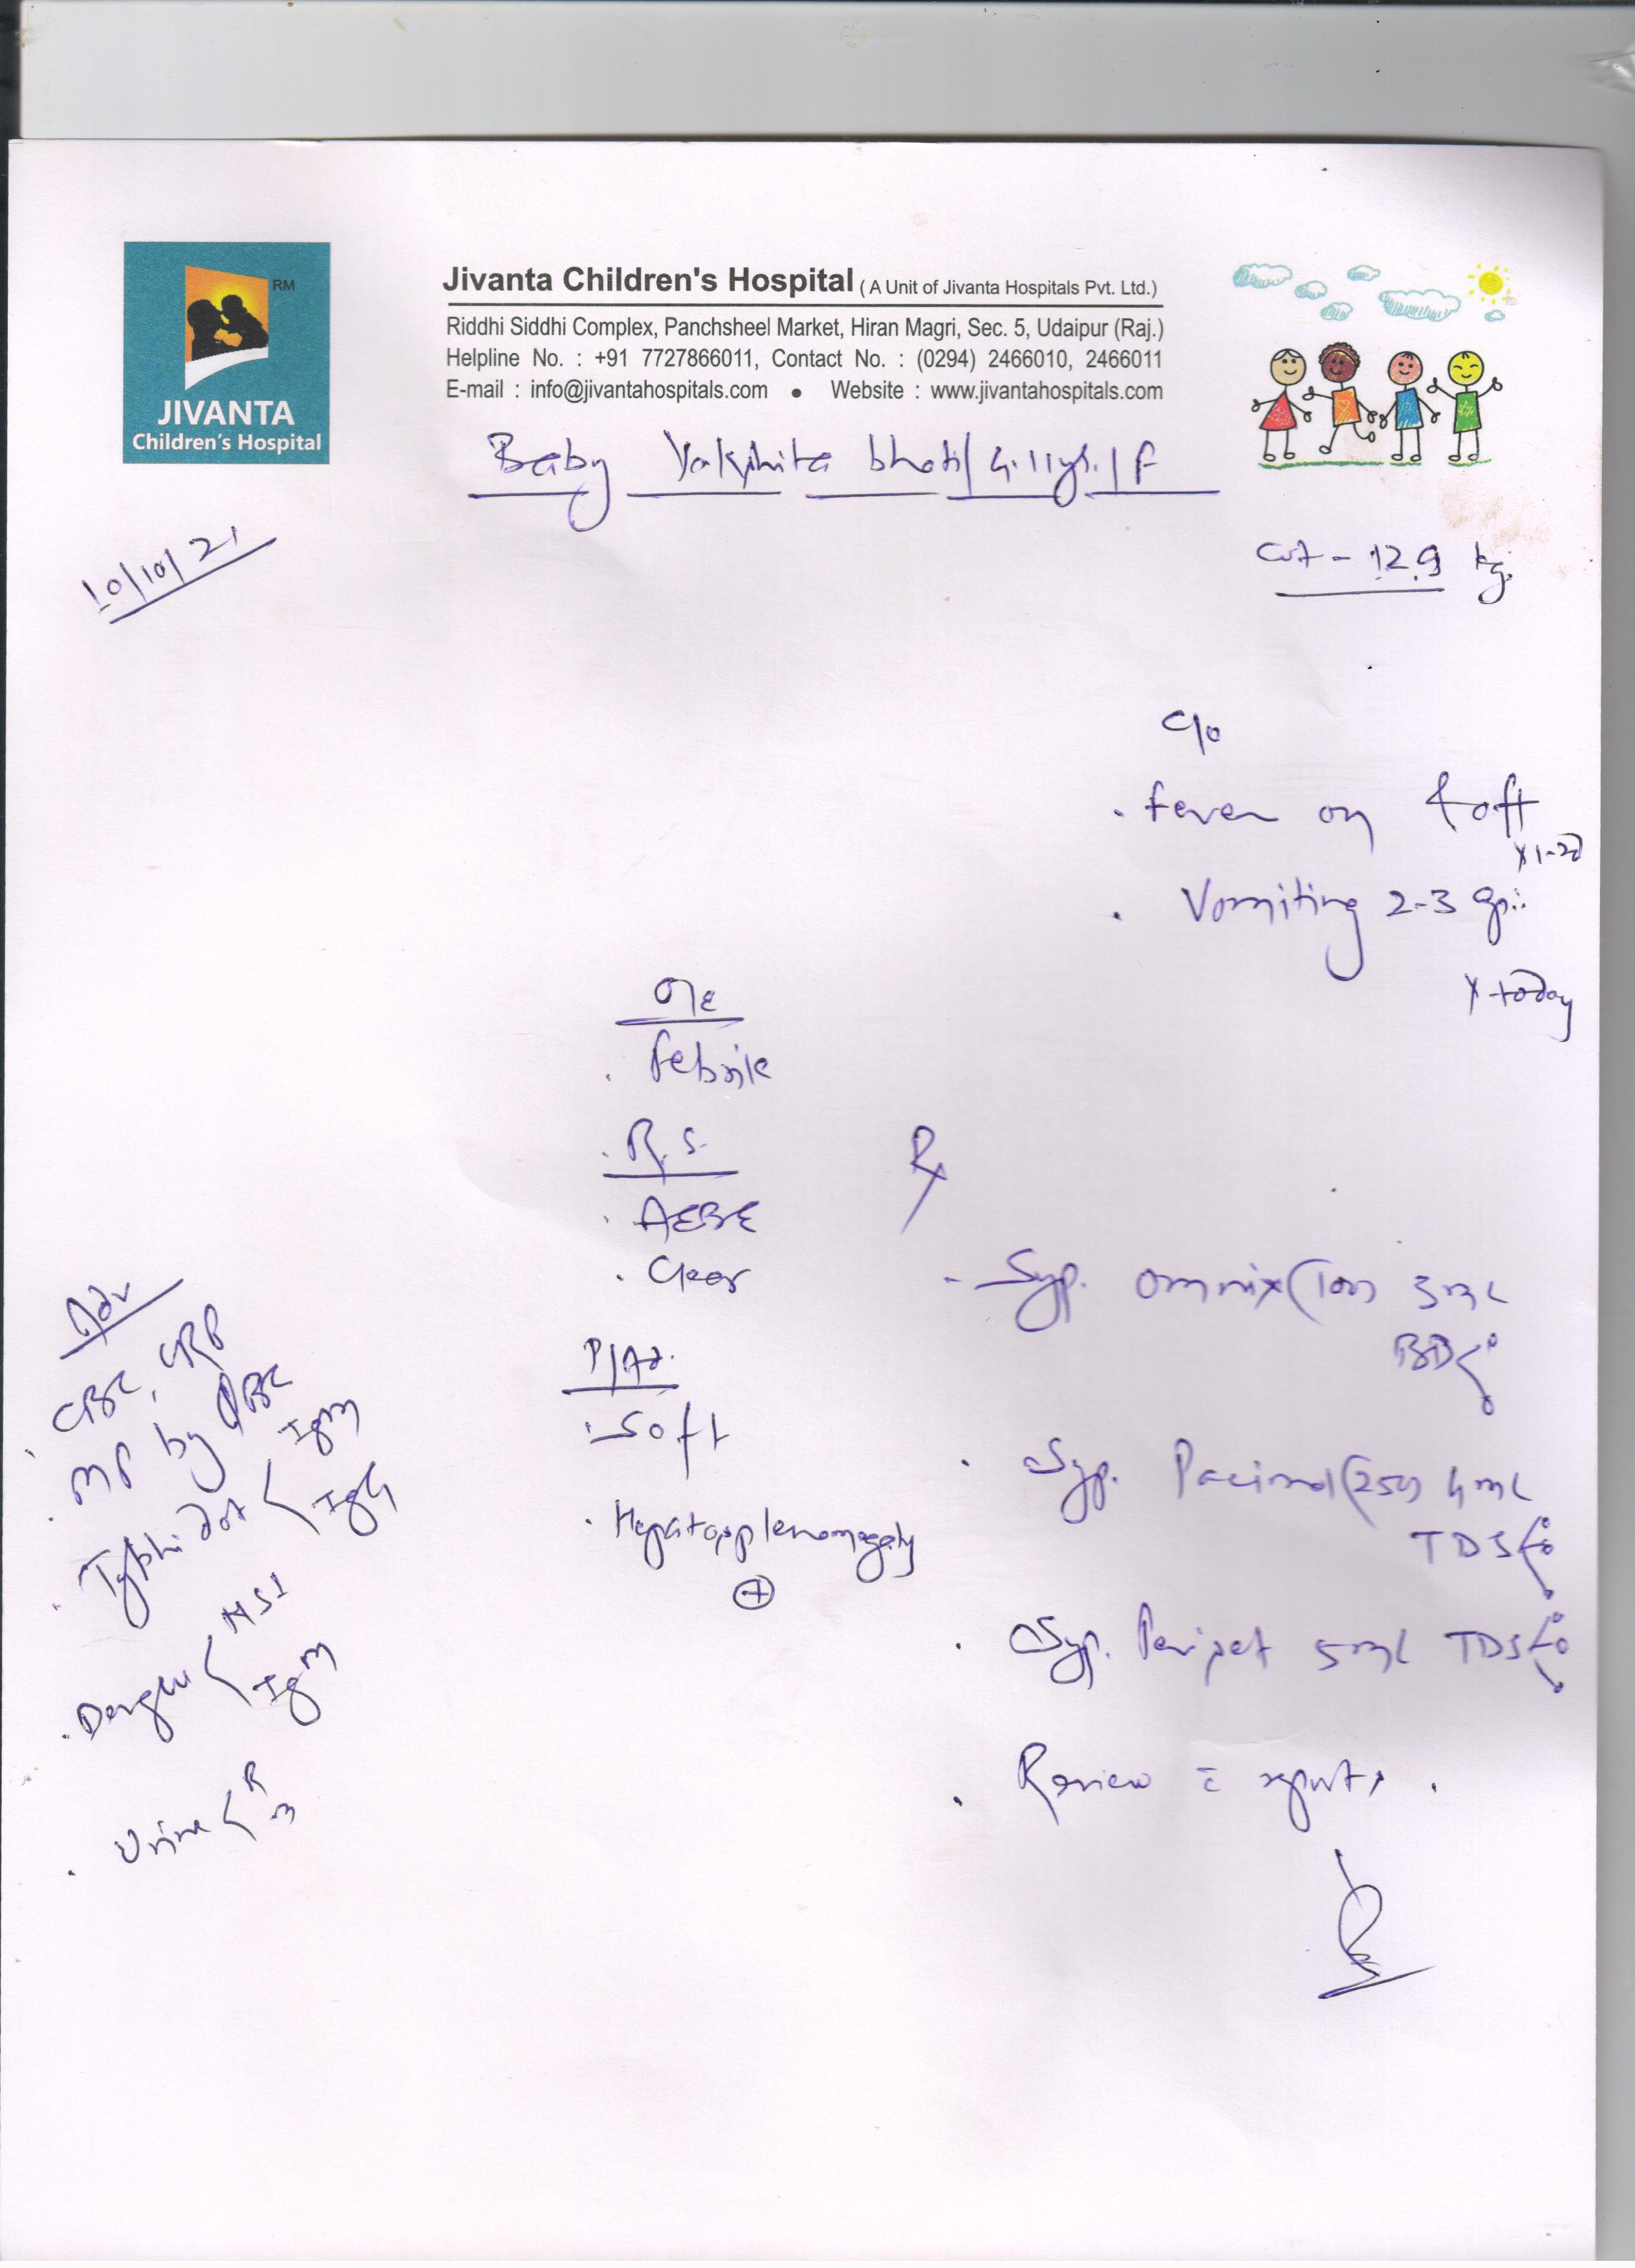 RM
JIVANTA
Children's Hospital
Jivanta Children's Hospital ( A Unit of Jivanta Hospitals Pvt. Ltd.)
Riddhi Siddhi Complex, Panchsheel Market, Hiran Magri, Sec. 5, Udaipur (Raj.)
Helpline No. : +91 7727866011, Contact No. : (0294) 2466010, 2466011
E-mail : info@jivantahospitals.com • Website : www.jivantahospitals.com
Baby Yakshita bhati / 4.11 yr. / F
10/10/21
wt - 12.9 kg.
c/o
. fever on & off
x 1-2d
. Vomiting 2-3
x today
O/E
. febrile
. R.S.
. AEBE
. Clear
P/Ad.
. Soft
. Hepatosplenomegaly
+
Adv
. CBC, CRP
. MP by
. Typhidot < IgM
IgG
. Dengue < NS1
IgM
. Urine < R
m
Rx
- Syp. Omnix (100) 3 ml
BD
. Syp. Pacimol (250) 4 ml
TDS
. Syp. Peripet 5 ml TDS
. Review c̄ reports.